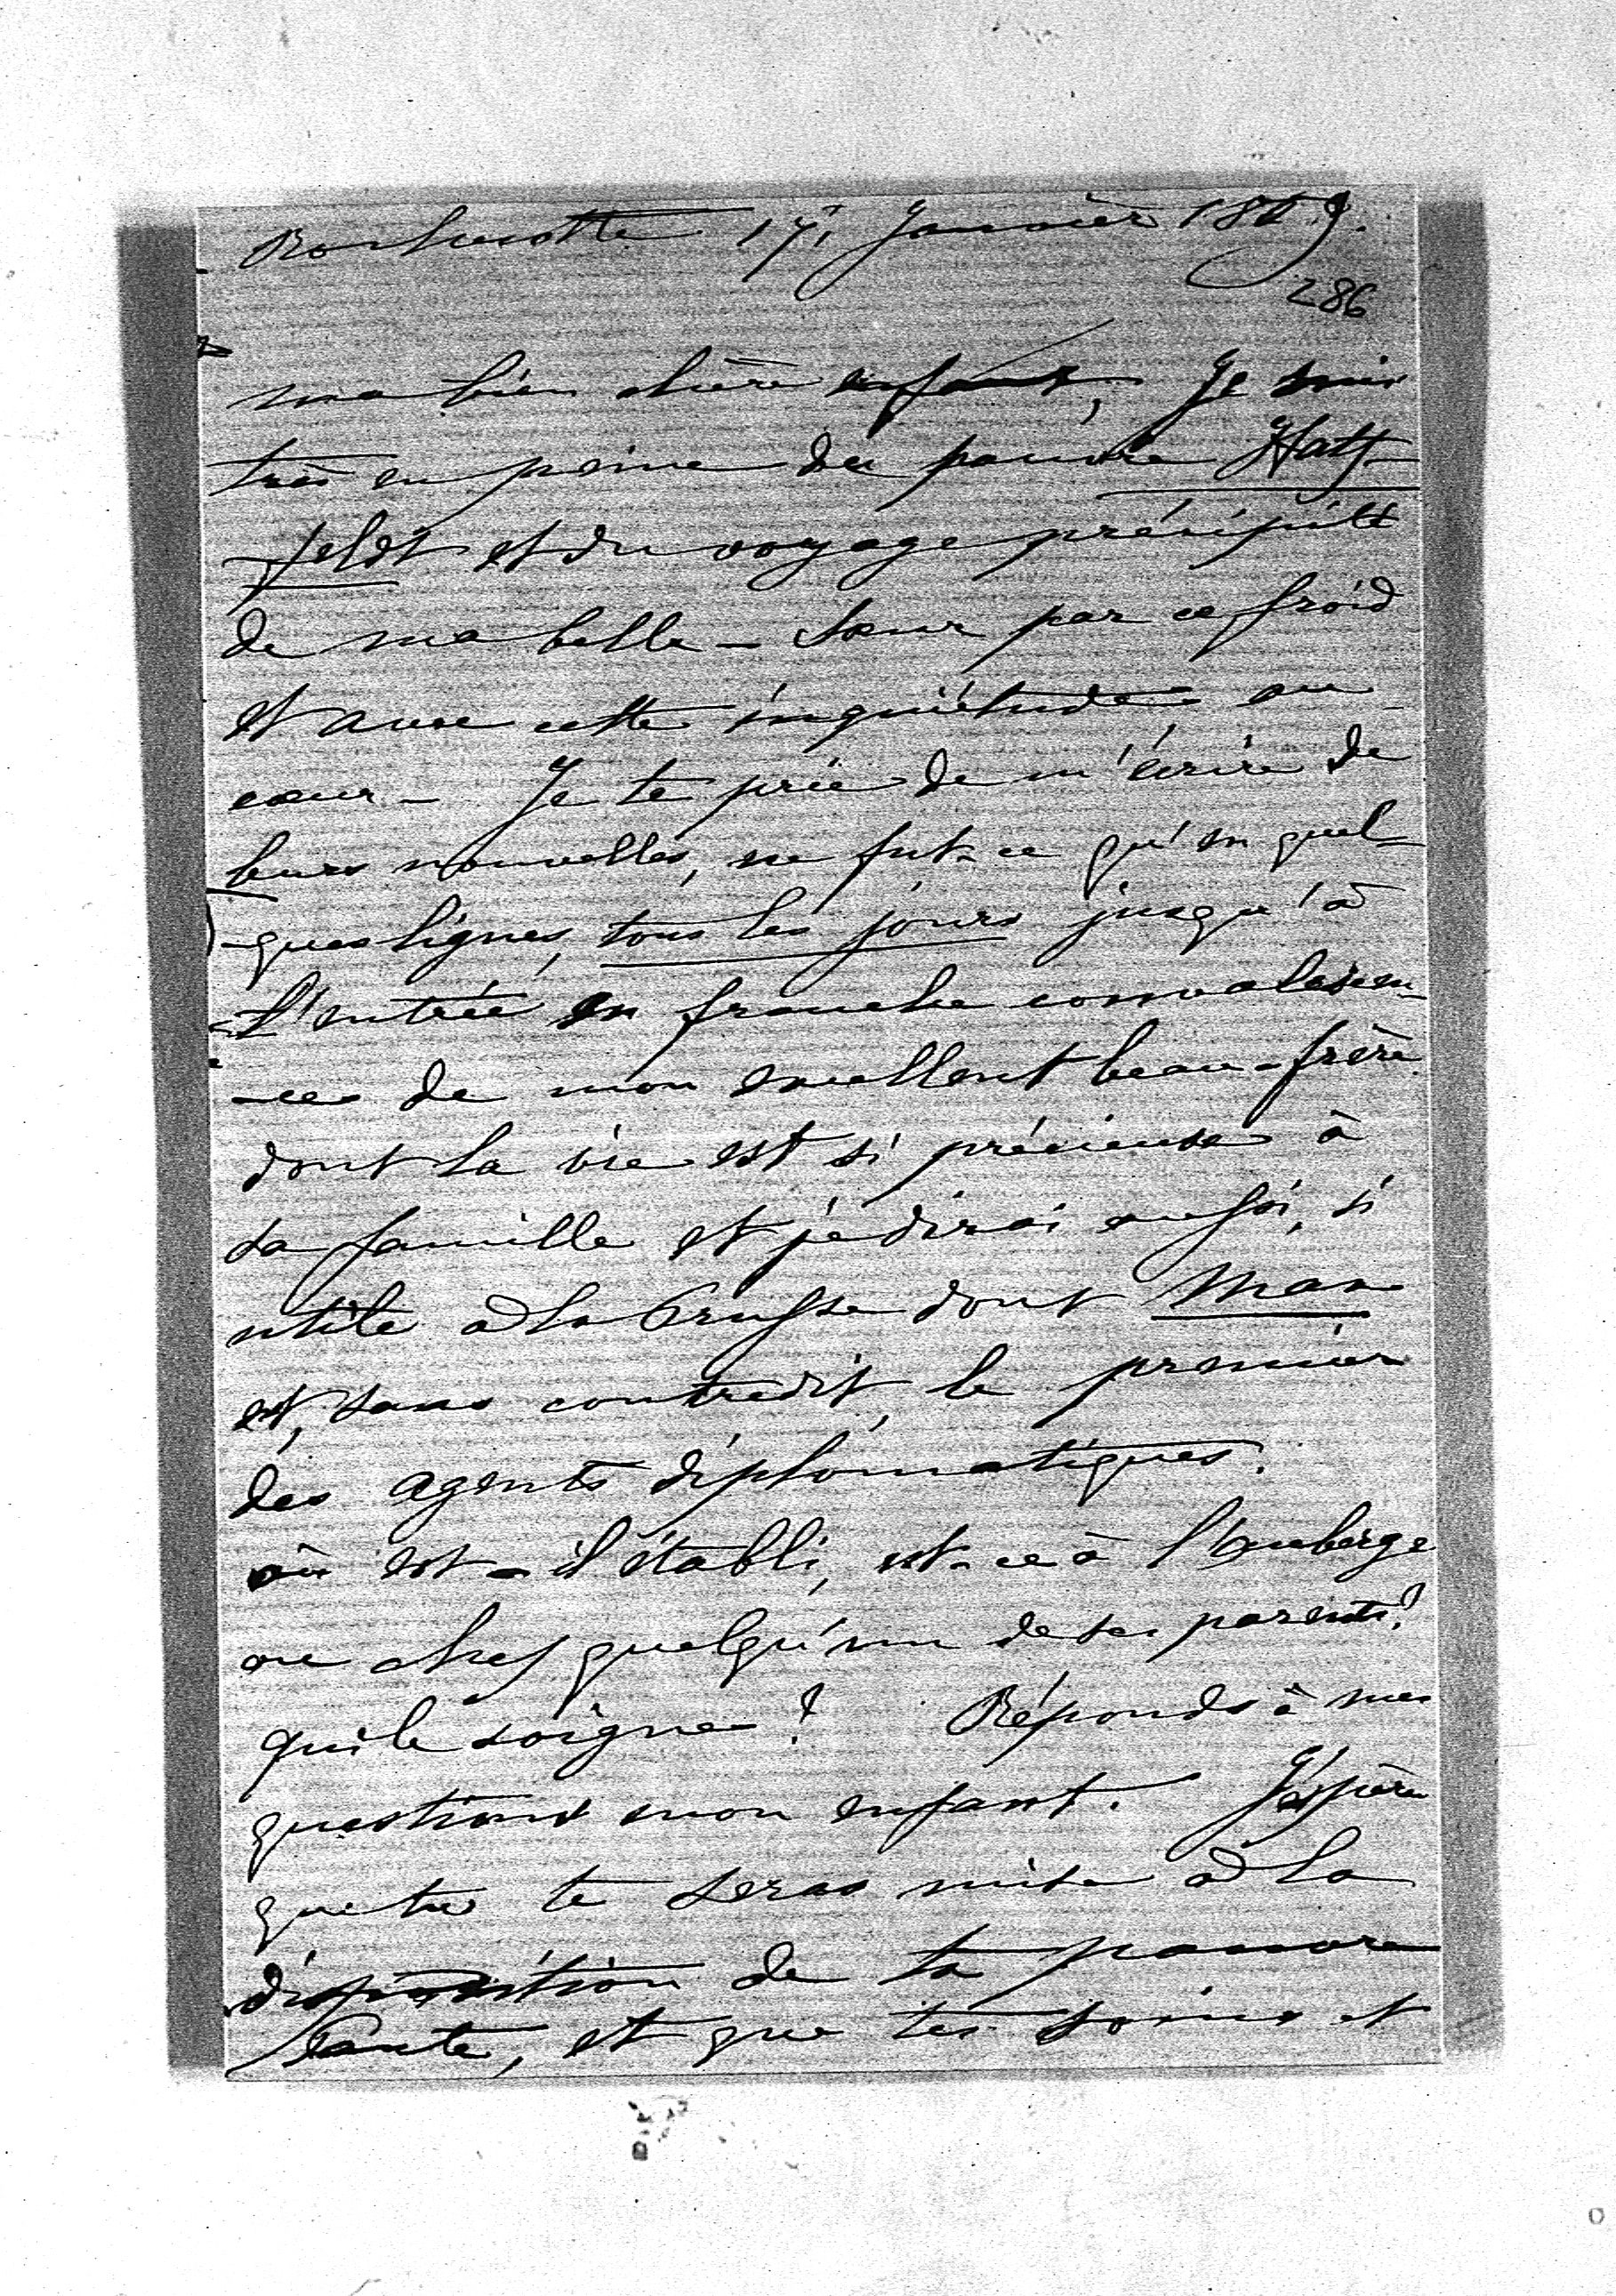 Rochecotte 17, Janvier 1859.
286
ma bien chère enfant, Je suis
très en peine du pauvre Hatz-
feldt et du voyage précipité
de ma belle-soeur par ce froid
et avec cette inquiétude au
coeur - Je te prie de m'écrire de
leurs nouvelles, ne fut-ce qu'en quel-
-ques lignes, tous les jours jusqu'à
l'entrée en franche convalescen-
-ce de mon excellent beau-frère
dont la vie est si précieuse à
sa famille et je dirai aussi, si
utile à la Prusse dont Max
est, sans contredit, le premier
des agents diplomatiques.
où est-il établi, est-ce à l'auberge
ou chez quelqu'un de ses parents?
qui le soigne? Réponds à mes
questions mon enfant. J'espère
que tu te seras mise à la
disposition de ta pauvre
Tante, et que tes soins et